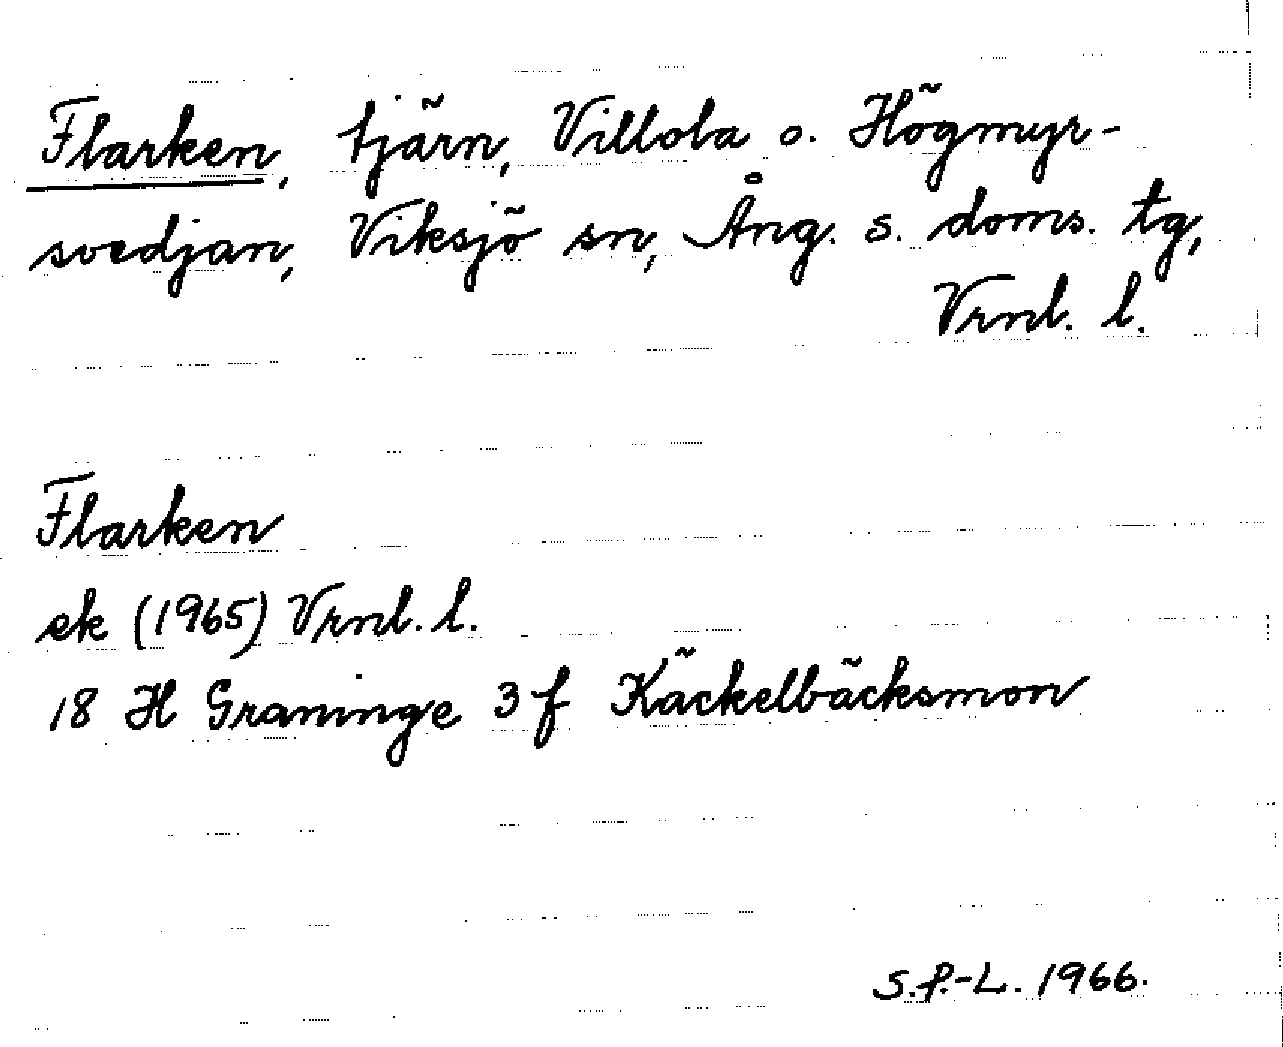 Flarken, tjärn, Villola o. Högmyr-
svedjan, Viksjö sn, Ång. s. doms. tg,
Vrnl. l.
Flarken
ek (1965) Vrnl. l.
18 H Graninge 3 f Käckelbäcksmon
S.F.-L. 1966.